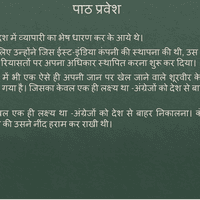 पाठ प्रवेश
देश में व्यापारी का भेष धारण कर के आये थे।
लिए उन्होंने जिस ईस्ट-इंडिया कंपनी की स्थापना की थी, उस
रियासतों पर अपना अधिकार स्थापित करना शुरू कर दिया।
में भी एक ऐसे ही अपनी जान पर खेल जाने वाले शूरवीर के
गया है। जिसका केवल एक ही लक्ष्य था -अंग्रेजों को देश से बा
एक ही लक्ष्य था -अंग्रेजों को देश से बाहर निकालना।
की उसने नींद हराम कर राखी थी।